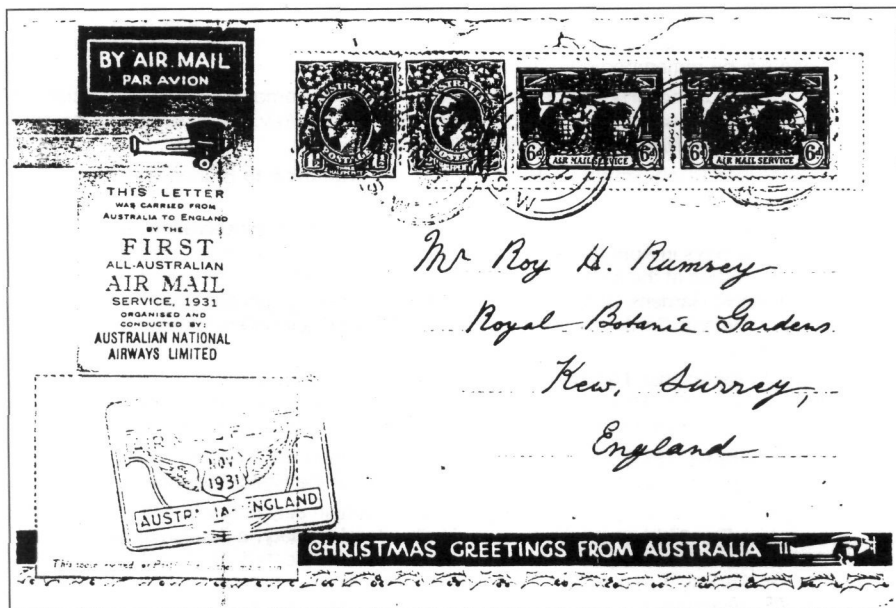 BY AIR MAIL
PAR AVION
THIS LETTER
WAS CARRIED FROM
AUSTRALIA TO ENGLAND
BY THE
FIRST
ALL-AUSTRALIAN
AIR MAIL
SERVICE, 1931
ORGANISED AND
CONDUCTED BY:
AUSTRALIAN NATIONAL
AIRWAYS LIMITED
AUSTRALIA
POSTAGE
HALFPENNY
AUSTRALIA
6d AIR MAIL SERVICE 6d
6d AIR MAIL SERVICE 6d
Mr Roy H. Rumsey
Royal Botanic Gardens
Kew, Surrey,
England
NOV
1931
ENGLAND
CHRISTMAS GREETINGS FROM AUSTRALIA